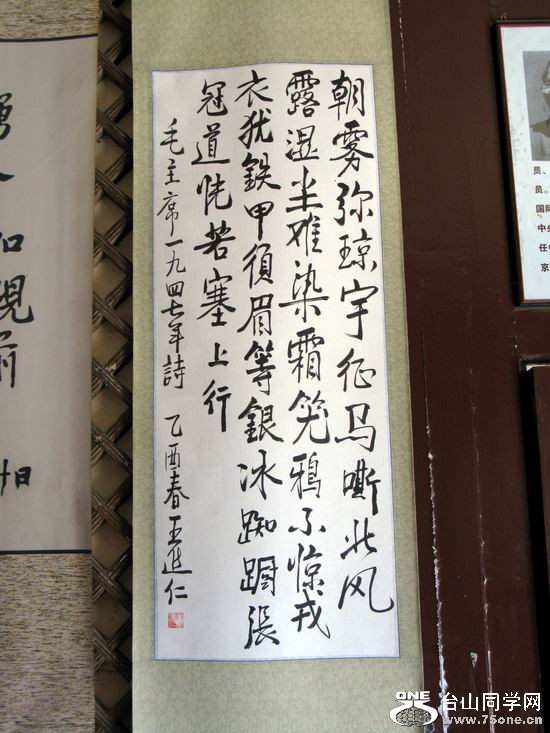 朝雾弥琼宇征马嘶北风
露湿尘难染霜笼鸦不惊戎
衣犹鉄甲須眉等銀冰踟蹰張
冠道恍若塞上行
毛主席一九四七年詩 乙酉春王进仁
员、
员。
国际
中央
任
京
ONE
台山同学网
www.75one.cn